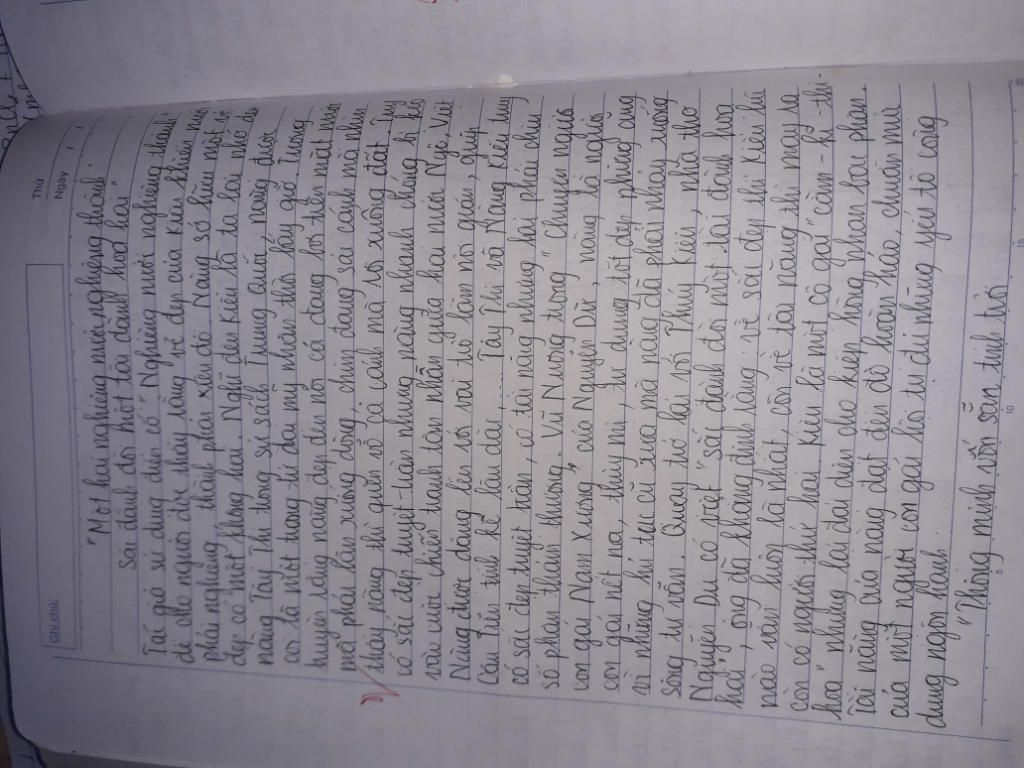 Thứ
Ngày
Ghi chú:
"Một hai nghiêng nước nghiêng thành
Sắc đành đòi một tài đành hoạ hai"
Tác giả sử dụng điển cố "Nghiêng nước nghiêng thành"
để cho người đọc thấy rằng vẻ đẹp của Kiều khiến nước
phải nghiêng thành phải xiêu đổ. Nàng sở hữu một vẻ
đẹp có một không hai. Nghĩ đến Kiều là ta lại nhớ đến
nàng Tây Thi trong sử sách Trung Quốc, nàng được
coi là một trong tứ đại mỹ nhân thời bấy giờ. Tương
truyền rằng nàng đẹp đến nỗi cá đang bơi trên mặt nước
mà phải lặn xuống dòng, chim đang sải cánh mà nhìn
thấy nàng thì quên vỗ cả cánh mà rơi xuống đất. Tuy
có sắc đẹp tuyệt trần nhưng nàng nhanh chóng bị kẻ
vào cuộc chiến tranh tàn nhẫn giữa hai nước Ngô, Việt
Nàng được dâng lên với vai trò làm nội gián, giúp
Câu Tiễn tính kế lâu dài,...... Tây Thi và Nàng Kiều tuy
có sắc đẹp tuyệt trần, có tài năng nhưng lại phải chịu
số phận thảm thương. Vũ Nương trong "Chuyện người
con gái Nam Xương" của Nguyễn Dữ, nàng là người
con gái nết na, thuỳ mị, tư dung tốt đẹp nhưng cũng
vì những hủ tục cũ xưa mà nàng đã phải nhảy xuống
sông tự vẫn. Quay trở lại với Thuý Kiều, nhà thơ
Nguyễn Du có viết "sắc đành đòi một tài đành hoạ
hai", ông đã khẳng định rằng về sắc đẹp thì Kiều là
mào vẫn luôn là nhất còn về tài năng thì may ra
còn có người thứ hai. Kiều là một cô gái "cầm - kì - thi -
hoạ" nhưng lại đại diện cho kiếp hồng nhan bạc phận.
Tài năng của nàng đạt đến độ hoàn hảo, chuẩn mực
của một người con gái hội tụ đủ những yếu tố công
dung ngôn hạnh.
"Thông minh vốn sẵn tính trời
5
10
15
20